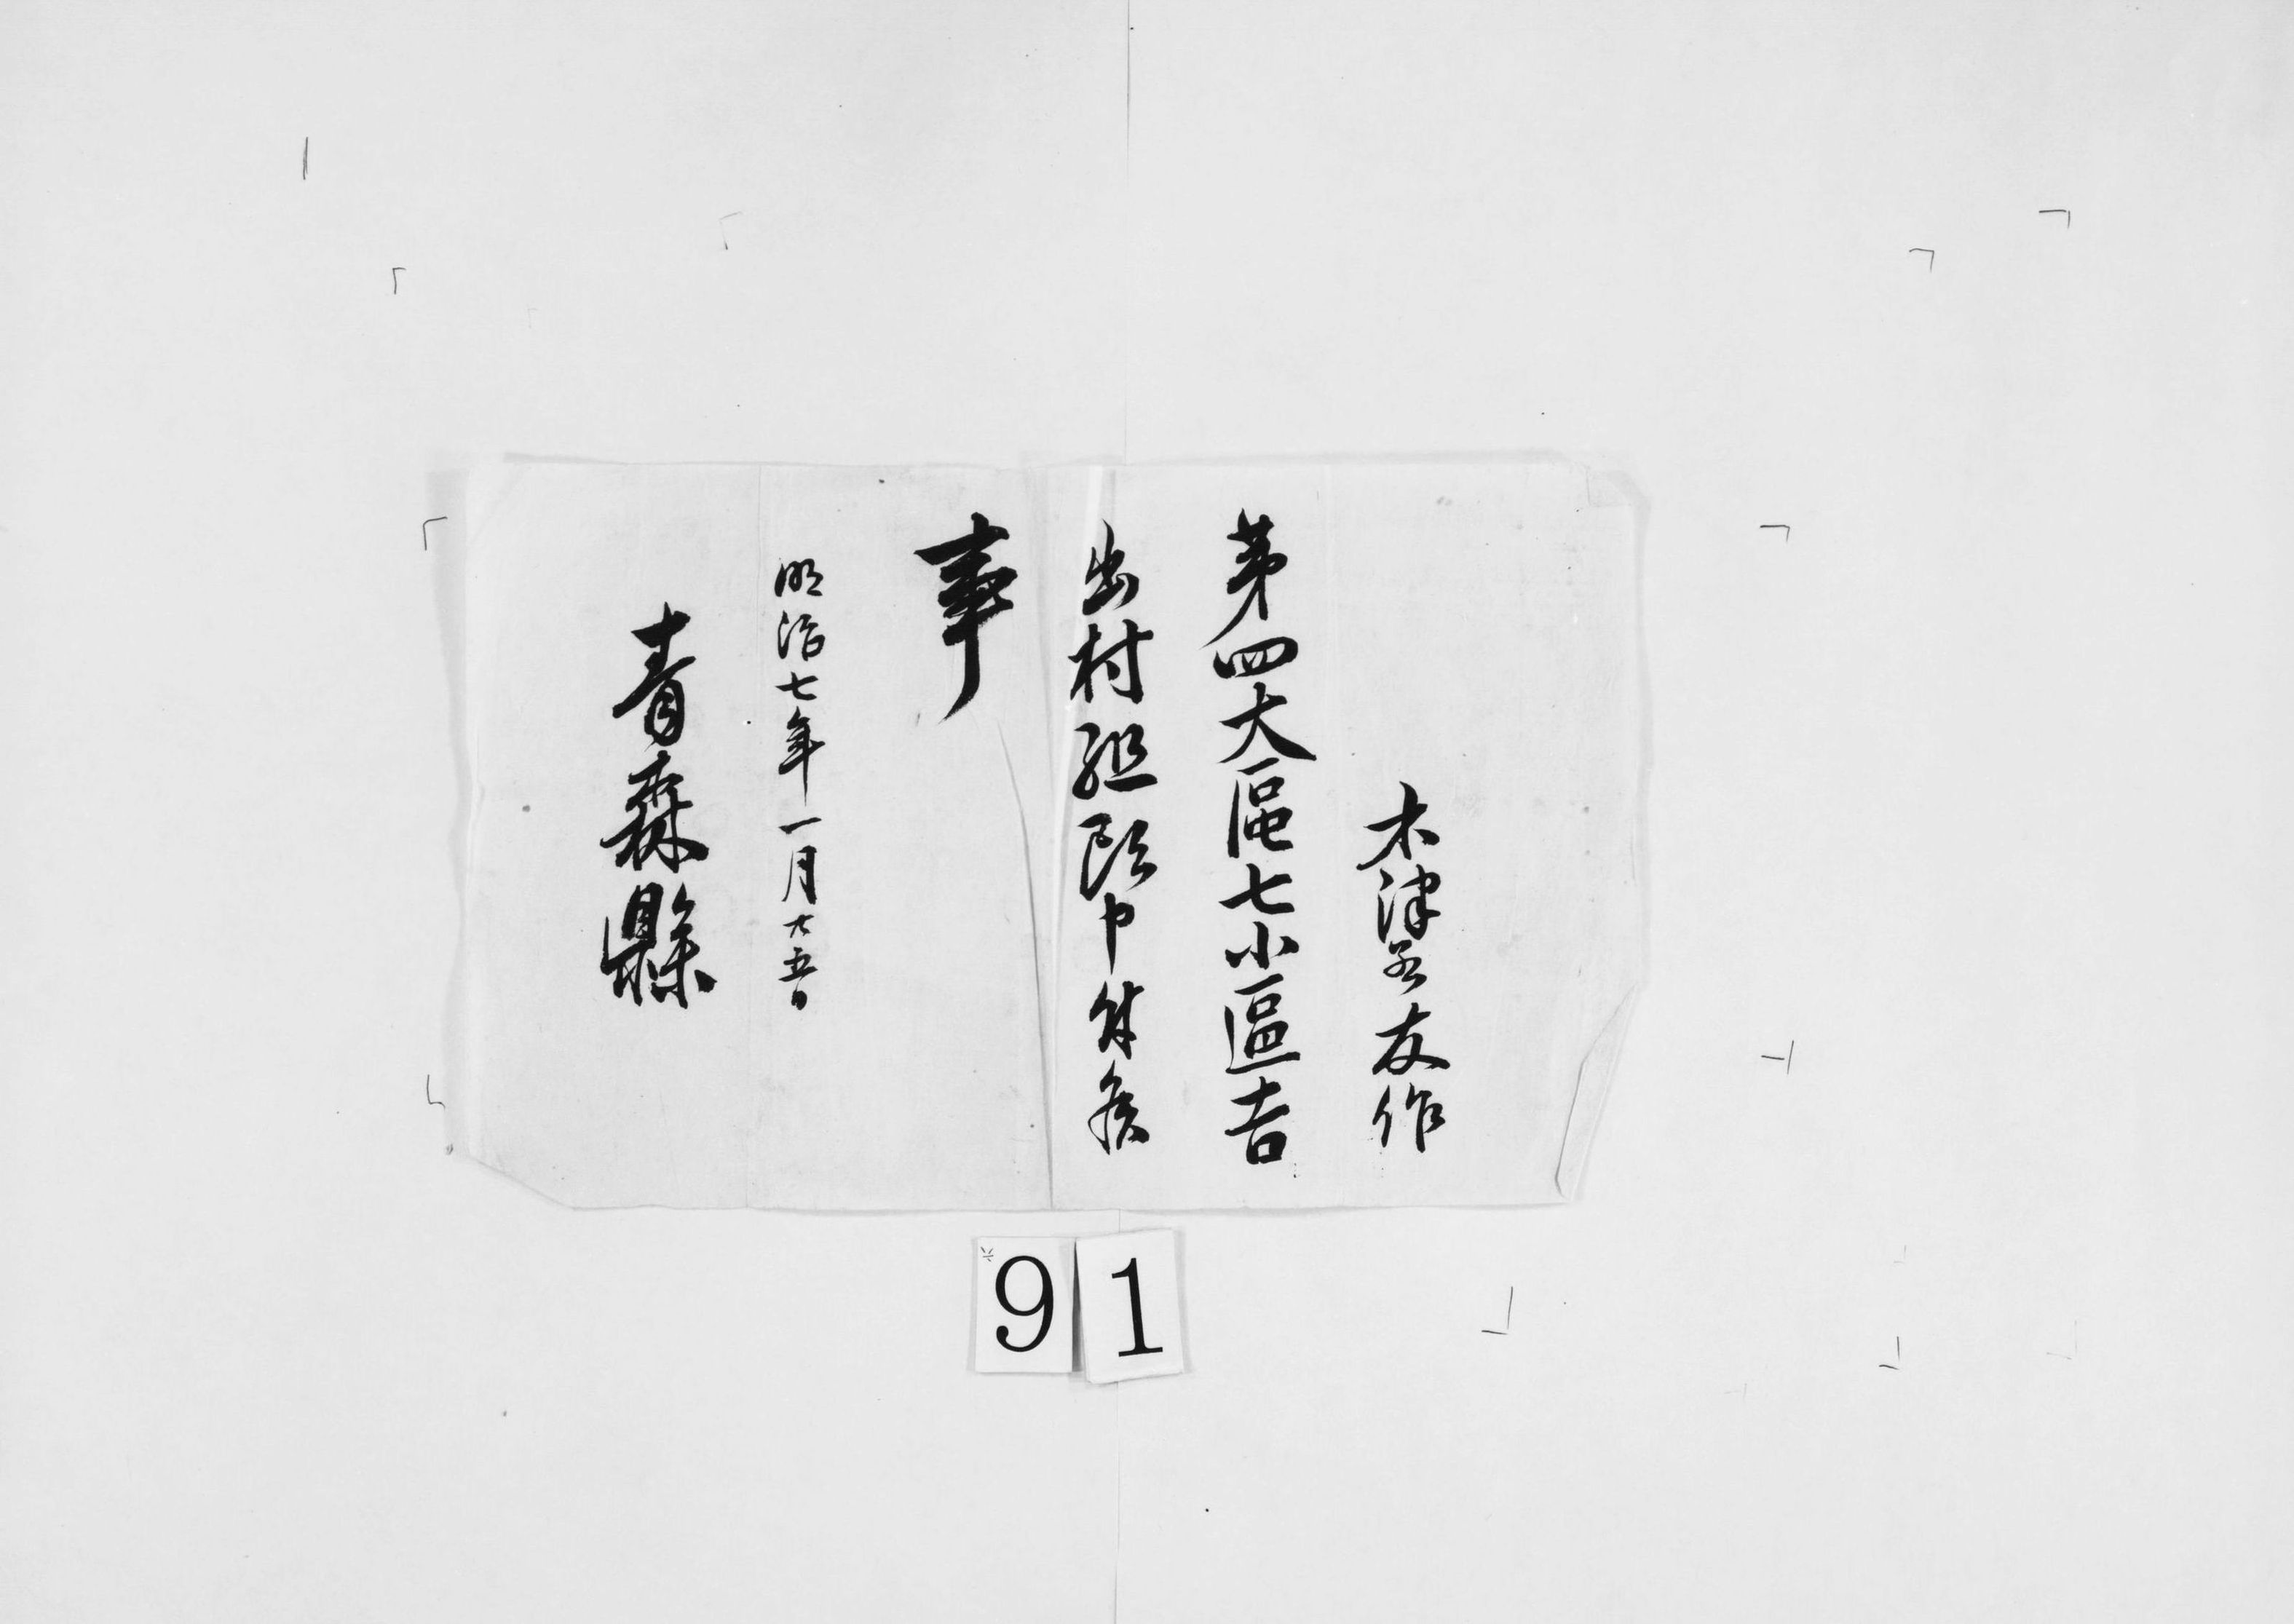 木津谷友作
第四大區七小區吉
出村組頭申付候
事
明治七年一月十五日
青森縣
91